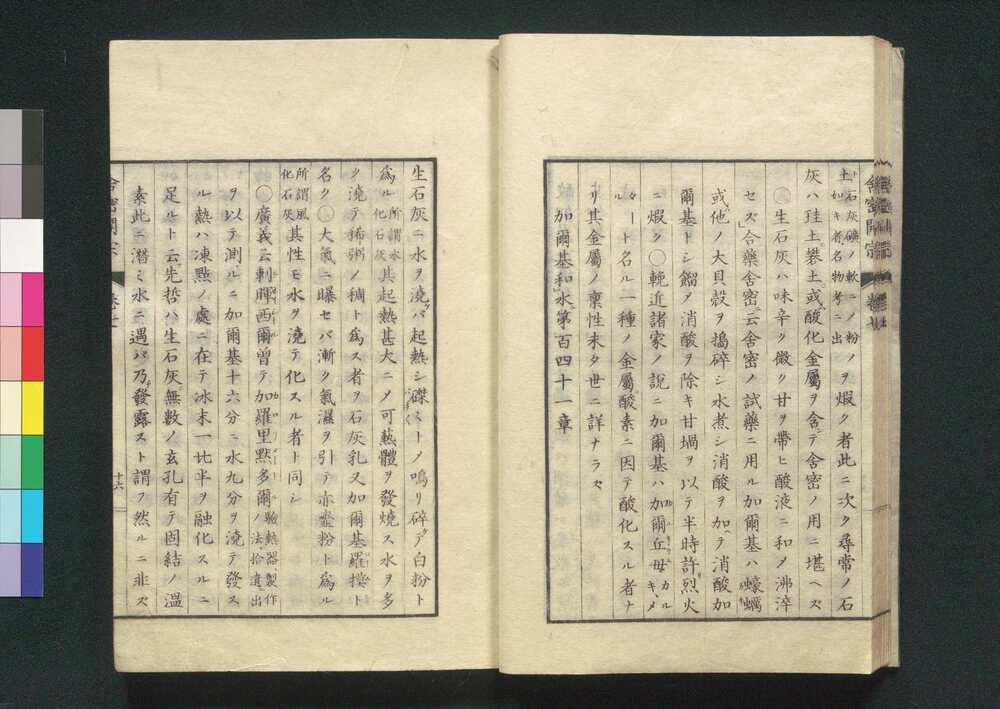 土 石灰礦ノ軟ニノ粉ノ如キ者名物考ニ出 ヲ煆ク者此ニ次ク尋常ノ石
灰ハ珪土礬土或酸化金屬ヲ含テ舎密ノ用ニ堪ヘス
生石灰ハ味辛ク微ク甘ヲ帶ヒ酸液ニ和メ沸淬
セズ「合藥舎密」云舎密ノ試藥ニ用ル加爾基ハ蠔蠣
或他ノ大貝殼ヲ搗碎シ水煮シ消酸ヲ加テ消酸加
爾基トシ餾ヲ消酸ヲ除キ甘堝ヲ以テ半時許烈火
ニ煆ク○輓近諸家ノ說ニ加爾基ハ加爾丘母 カルキ、メタートル 
ト名ル一種ノ金屬酸素ニ因テ酸化スル者ナ
リ其金屬ノ稟性未タ世ニ詳ナラス
加爾基和水 第百四十一章
舎密開宗
生石灰ニ水ヲ澆ケバ起熱シ礫々トノ鳴リ碎テ白粉ト
爲ル 所謂水化石灰 其起熱甚大ニメ可熱體ヲ發燒ス水ヲ多
ク澆テ稀粥ノ稠ト爲ス者ヲ石灰乳又加爾基羅搽ト
名ク 大氣ニ曝セバ漸ク氣濕ヲ引テ亦粉ト爲ル
所謂風化石灰 其性モ水ヲ澆テ化スル者ト同シ
廣義云刺暉西爾曽テ加羅里默多爾 驗熱器製作ノ法拾遺出
ヲ以テ測ルニ加爾基十六分ニ水九分ヲ澆テ發ス
ル熱ハ凍點ノ處ニ在テ冰末一比半ヲ融化スルニ
足ルト云先哲ハ生石灰無數ノ玄孔有テ固結ノ溫
素此ニ潜ミ水ニ遇バ乃發露スト謂フ然ルニ非ズ
十六